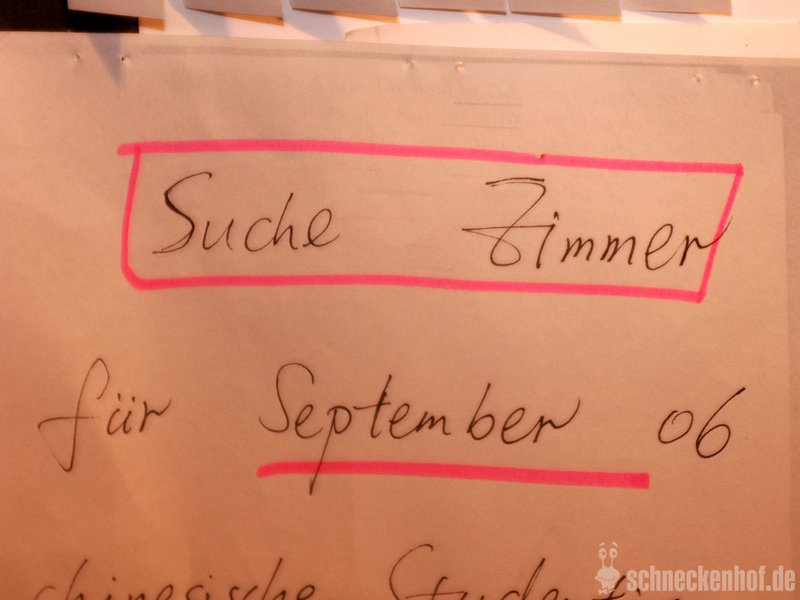 Suche Zimmer
für September 06
chinesische
schneckenhof.de